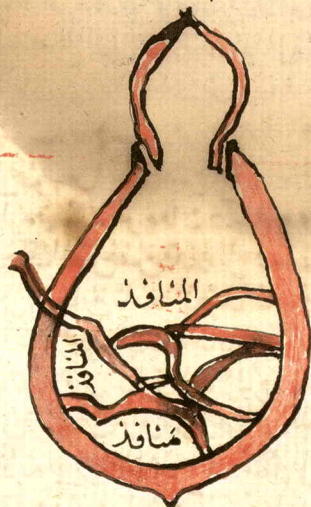 المنافذ
المنافذ
منافذ